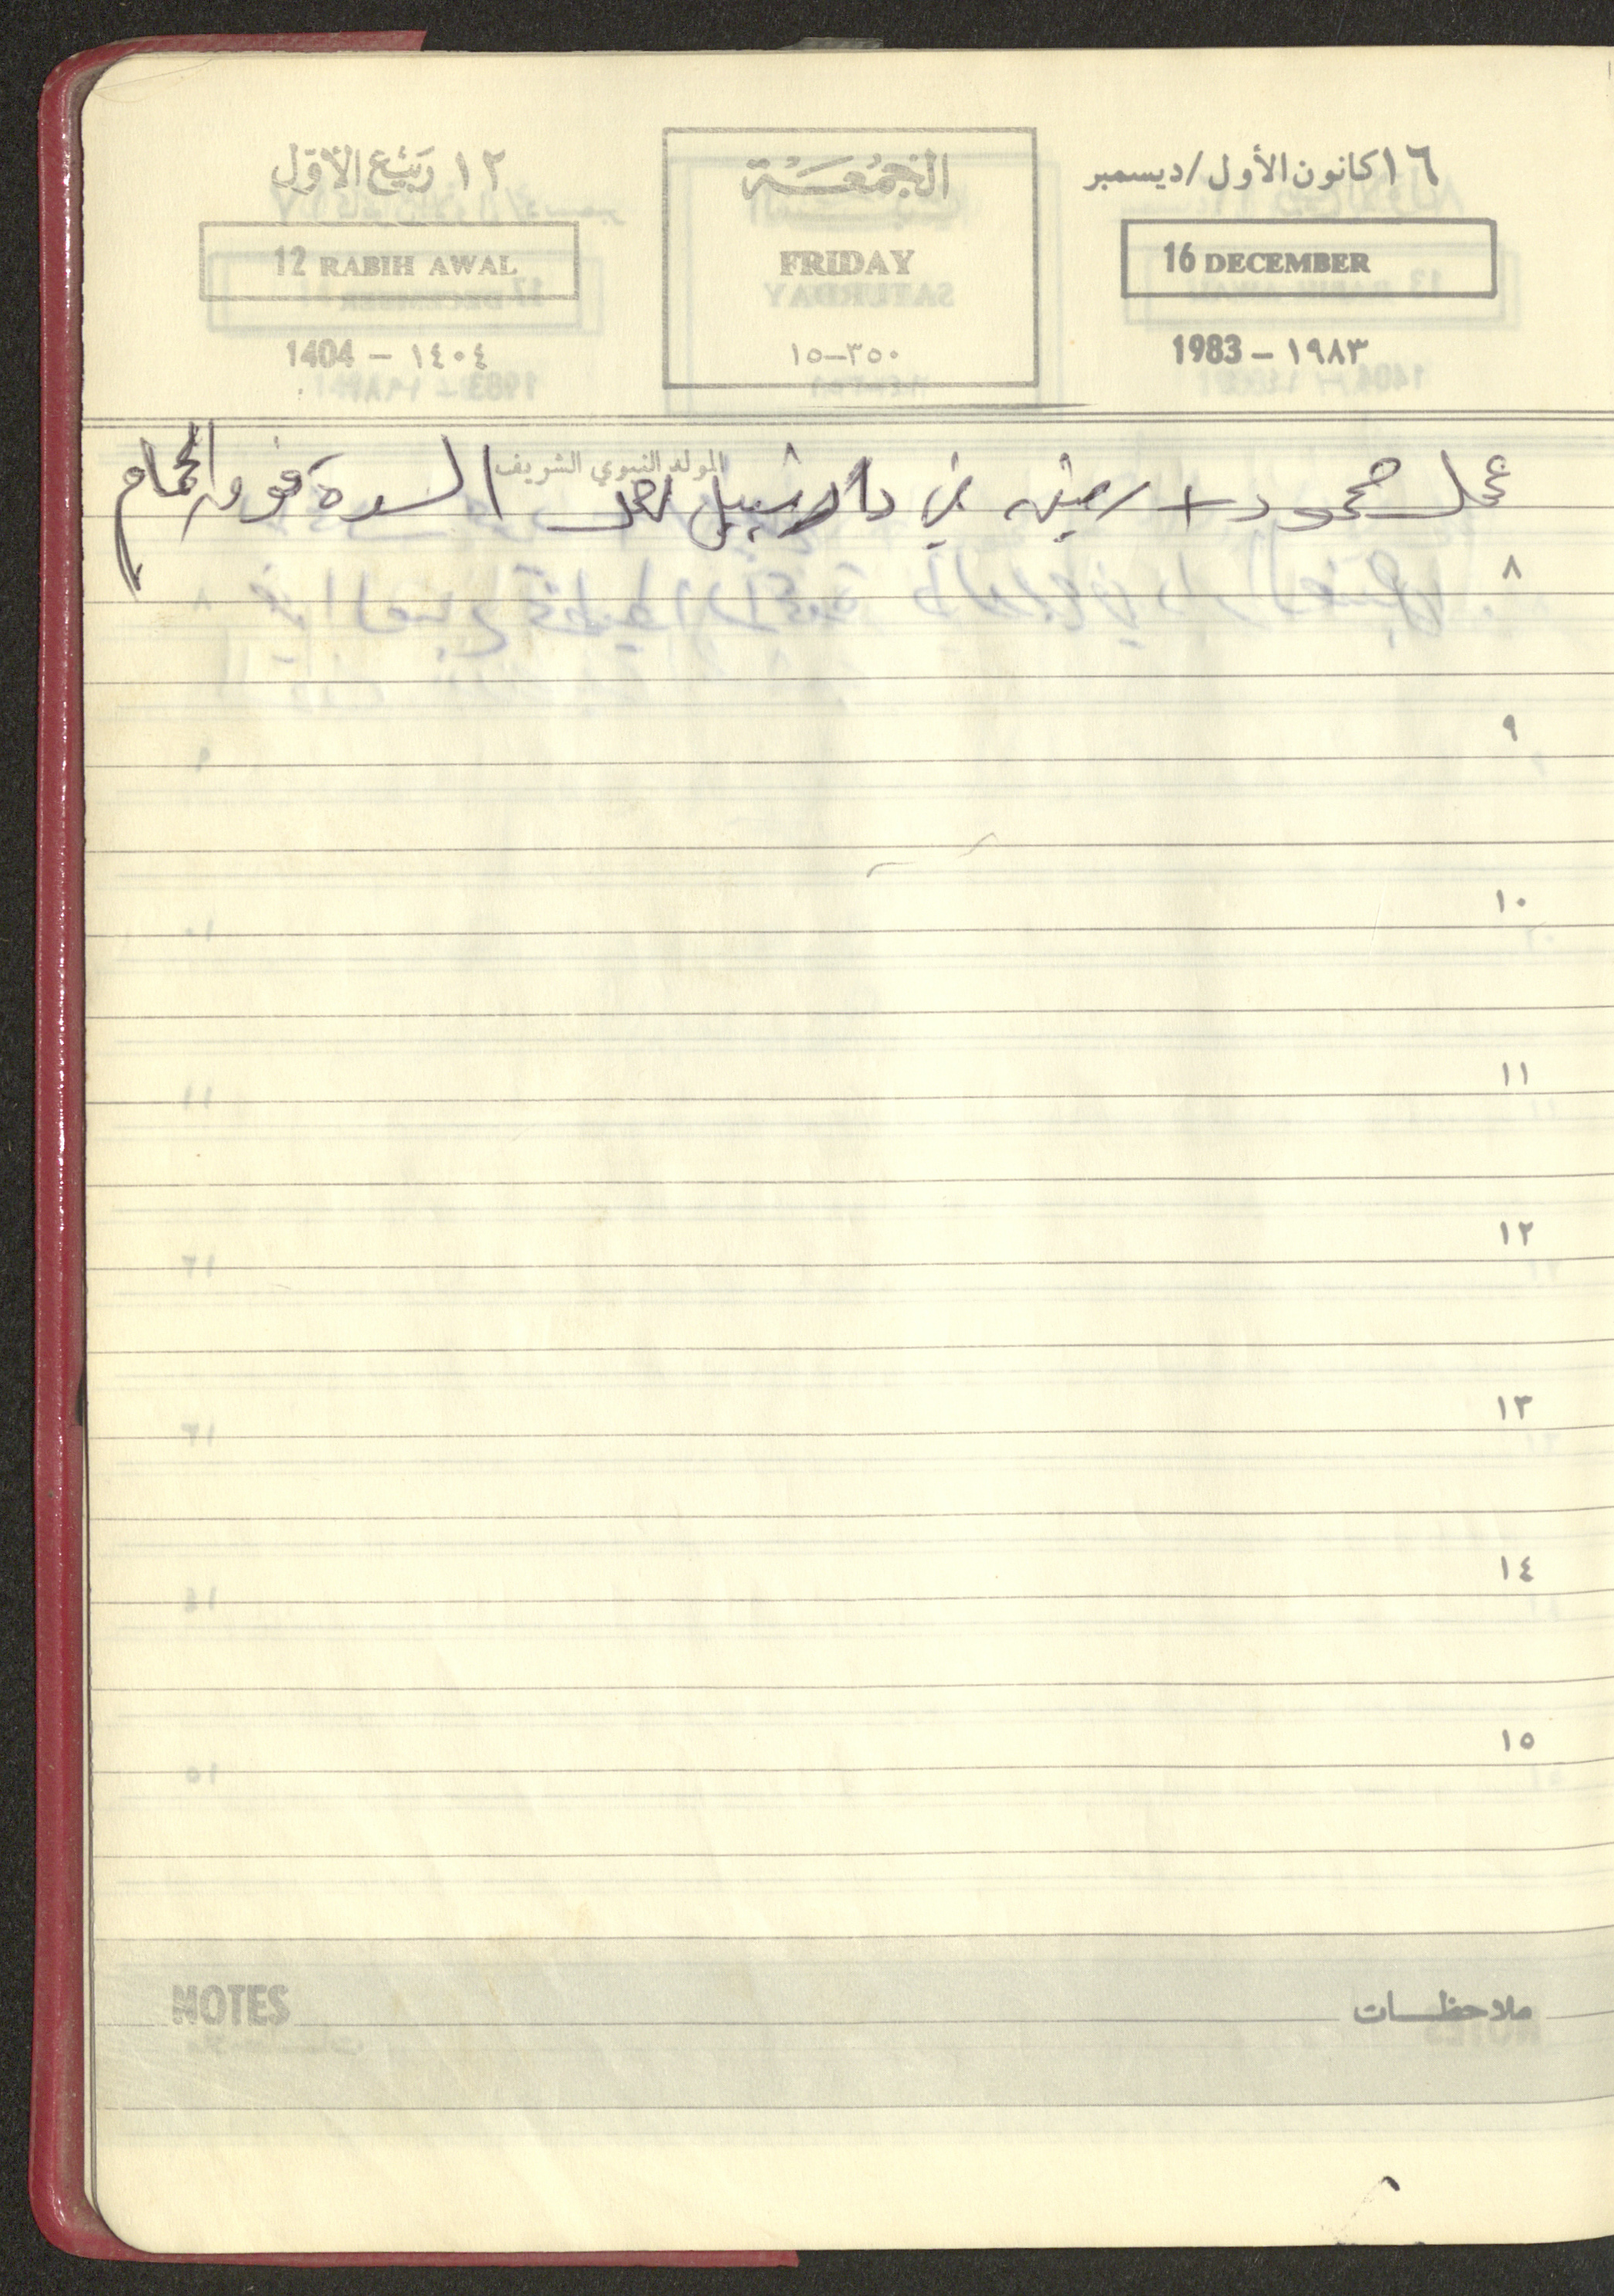 ١٦ كانون الأول/ديسمبر
16 DECEMBER
1983 – ١٩٨٣
الجمعة
FRIDAY
٣٥٠–١٥
١٢ ربيع الأول
12 RABIH AWAL
1404 – ١٤٠٤
المولد النبوي الشريف
عمل محمود + في دار نبيل السدة فوق الحمام
٨
٩
١٠
١١
١٢
١٣
١٤
١٥
ملاحظات
NOTES